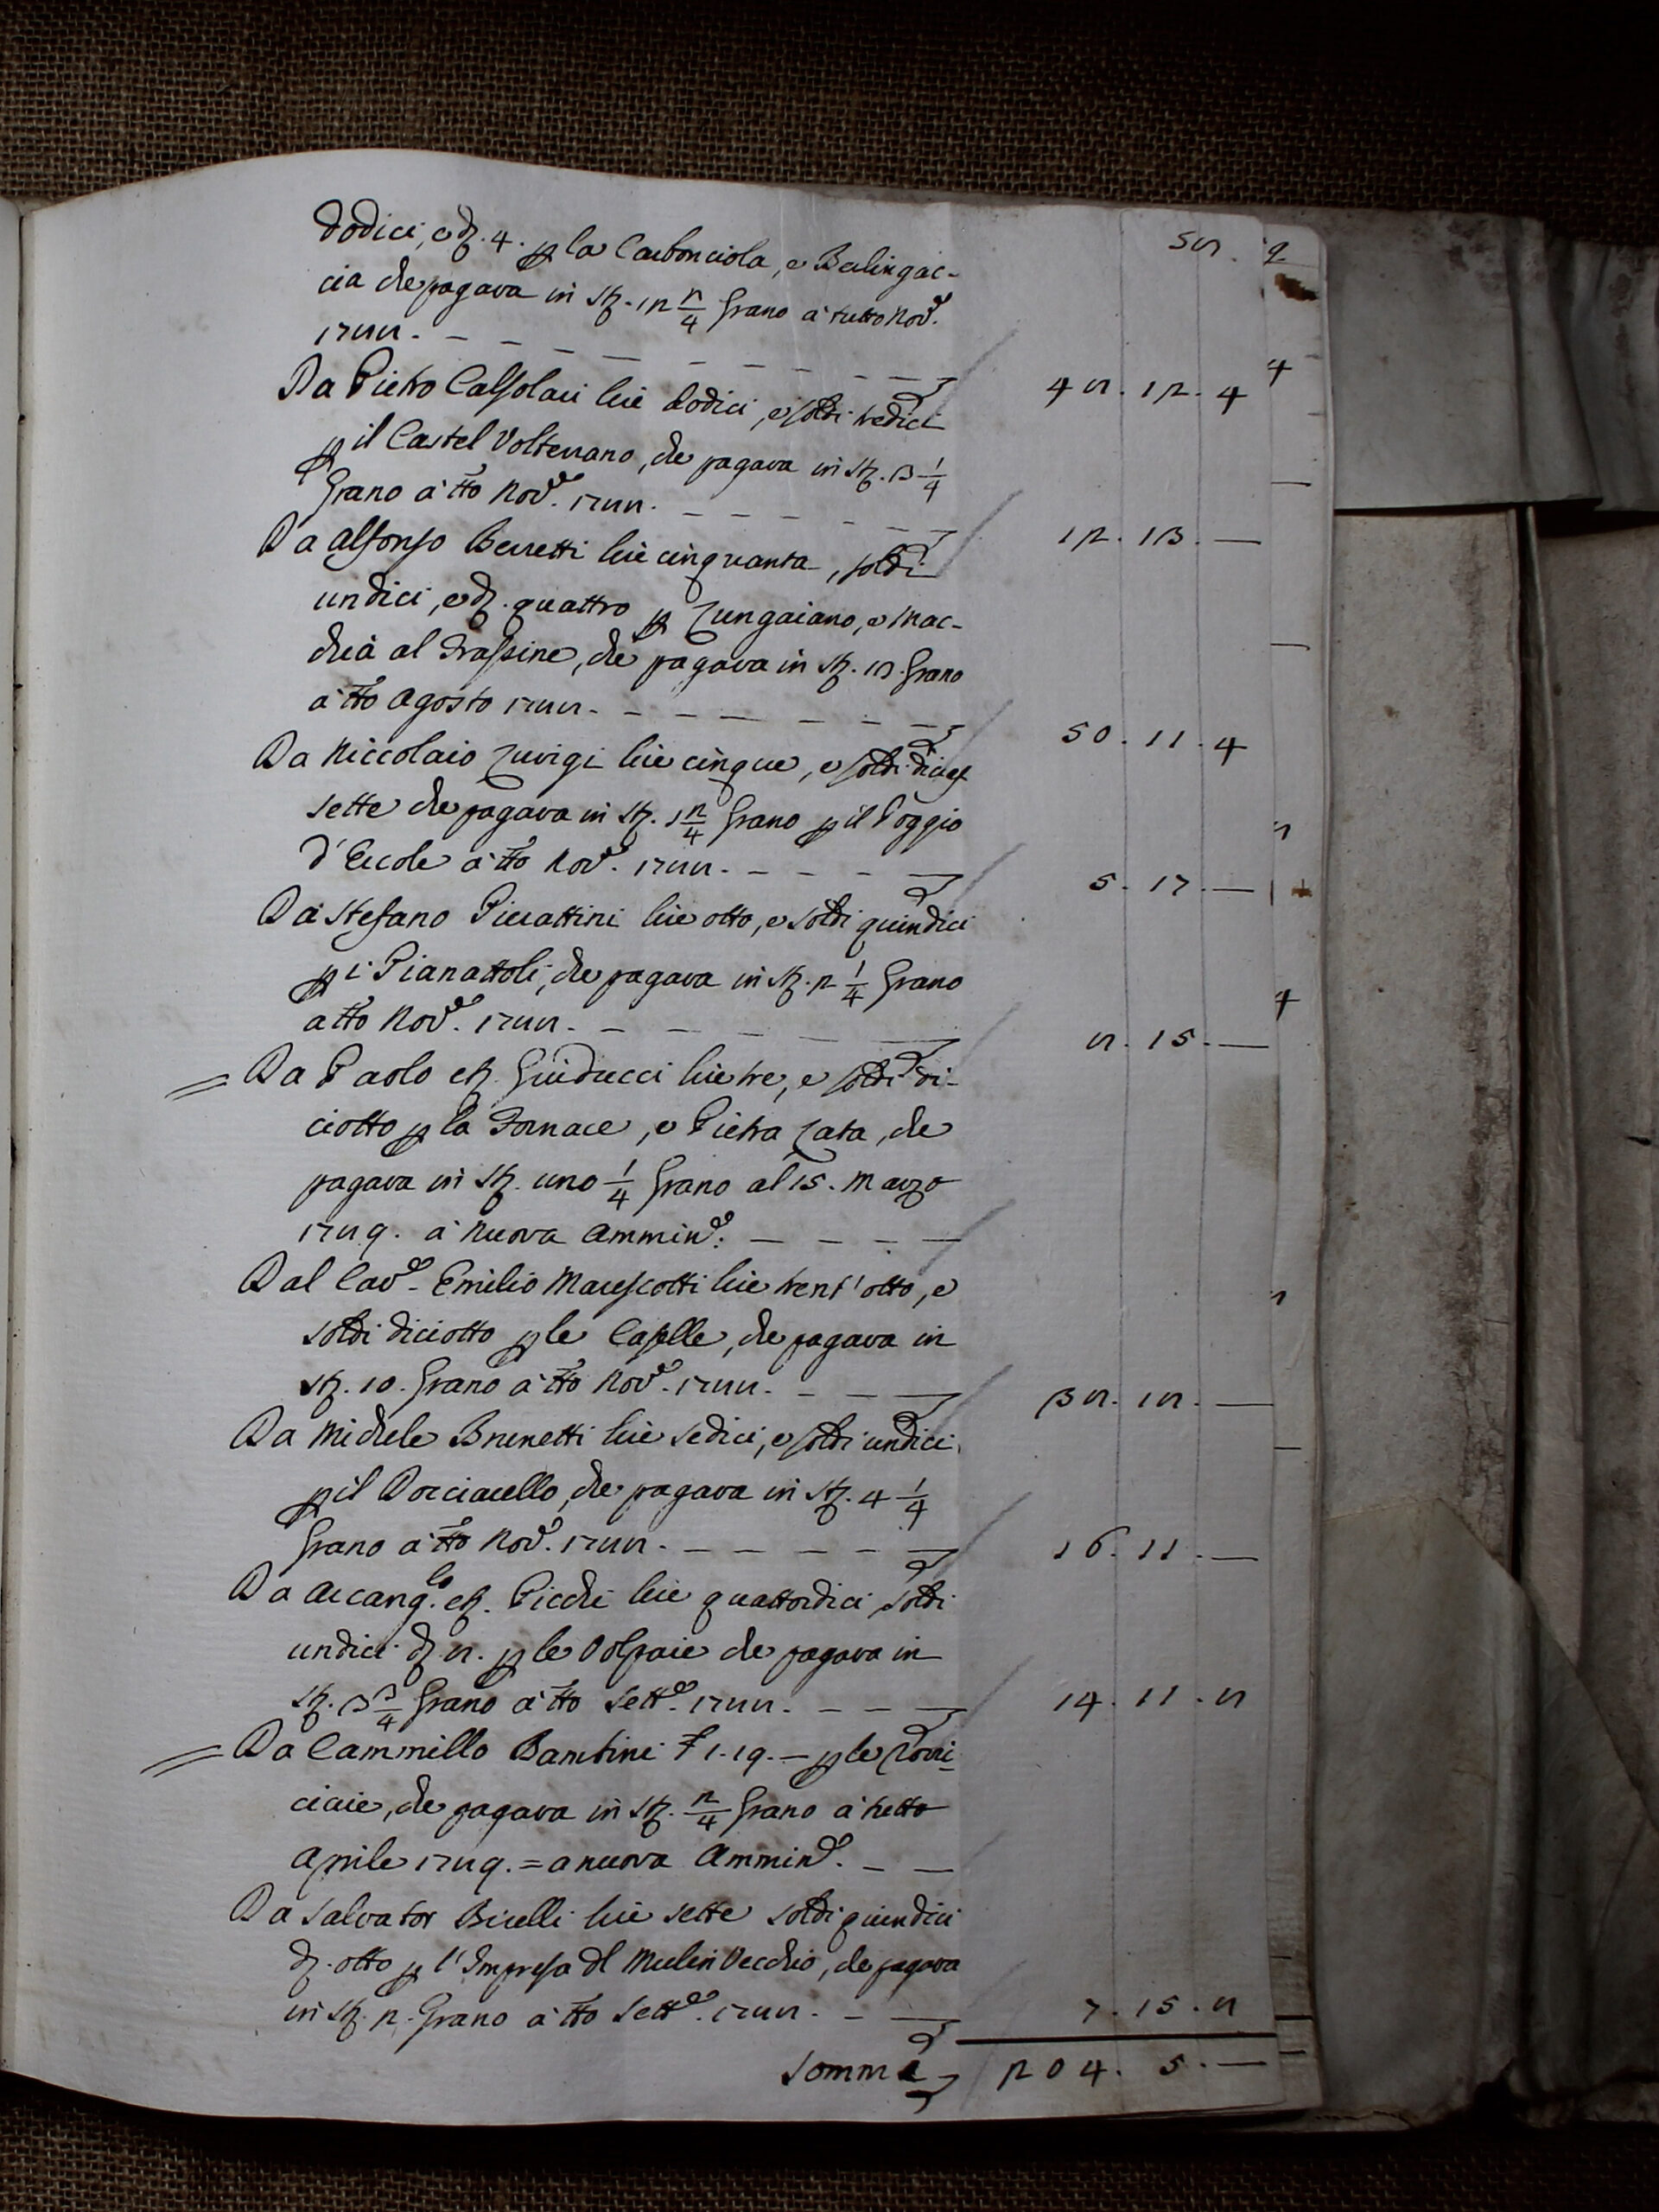 58. 2
dodici, e d. 4. p la Carbonciola, e Berlingac-
cia che pagava in St. 12 2/4 Grano a tutto Nov.e
1788. - - - - - - - - - 48. 12. 4
Da Pietro Calsolari lire dodici, e soldi tredici
p il Castel Volterrano, che pagava in St. 3 1/4
Grano a tto Nov.e 1788. - - - - - - 12. 13. —
Da Alfonso Berretti lire cinquanta, soldi
undici, e d. quattro p Lungaiano, e Mac-
chia al Frassine, che pagava in St. 13. Grano
a tto Agosto 1788. - - - - - - - 50. 11. 4
Da Niccolaio Luvigi lire cinque, e soldi dicias
sette che pagava in St. 1 2/4 Grano p il Poggio
d'Ercole a tto Nov.e 1788. - - - - 5. 17. —
Da Stefano Pierattini lire otto, e soldi quindici
p i Pianattoli, che pagava in St. 2 1/4 Grano
a tto Nov.e 1788. - - - - - 8. 15. —
= Da Paolo et. Guiducci lire tre, e soldi di-
ciotto p la Fornace, e Pietra Lata, che
pagava in St. uno 1/4 Grano al 15. Marzo
1789. a nuova Ammin.e: - - - -
Dal Cav.e Emilio Marescotti lire trent'otto, e
soldi diciotto p le Caselle, che pagava in
St. 10. Grano a tto Nov.e 1788. - - - 38. 18. —
Da Michele Brunetti lire sedici, e soldi undici
p il Docciarello, che pagava in St. 4 1/4
Grano a tto Nov.e 1788. - - - - - 16. 11. —
Da Arcang.lo et. Picchi lire quattordici soldi
undici d. 8. p le Volpaie che pagava in
St. 3 3/4 Grano a tto Sett.e 1788. - - - 14. 11. 8
= Da Cammillo Bambini £ 1. 19. — p le
ciaie, che pagava in St. 2/4 Grano a tutto
Aprile 1789. = a nuova Ammin.e. - -
Da Salvator Bicelli lire sette soldi quindici
d. otto p l'Impresa dl Mulin Vecchio, che pagava
in St. 2. Grano a tto Sett.e 1788. - - 7. 15. 8
Somma 204. 5. —